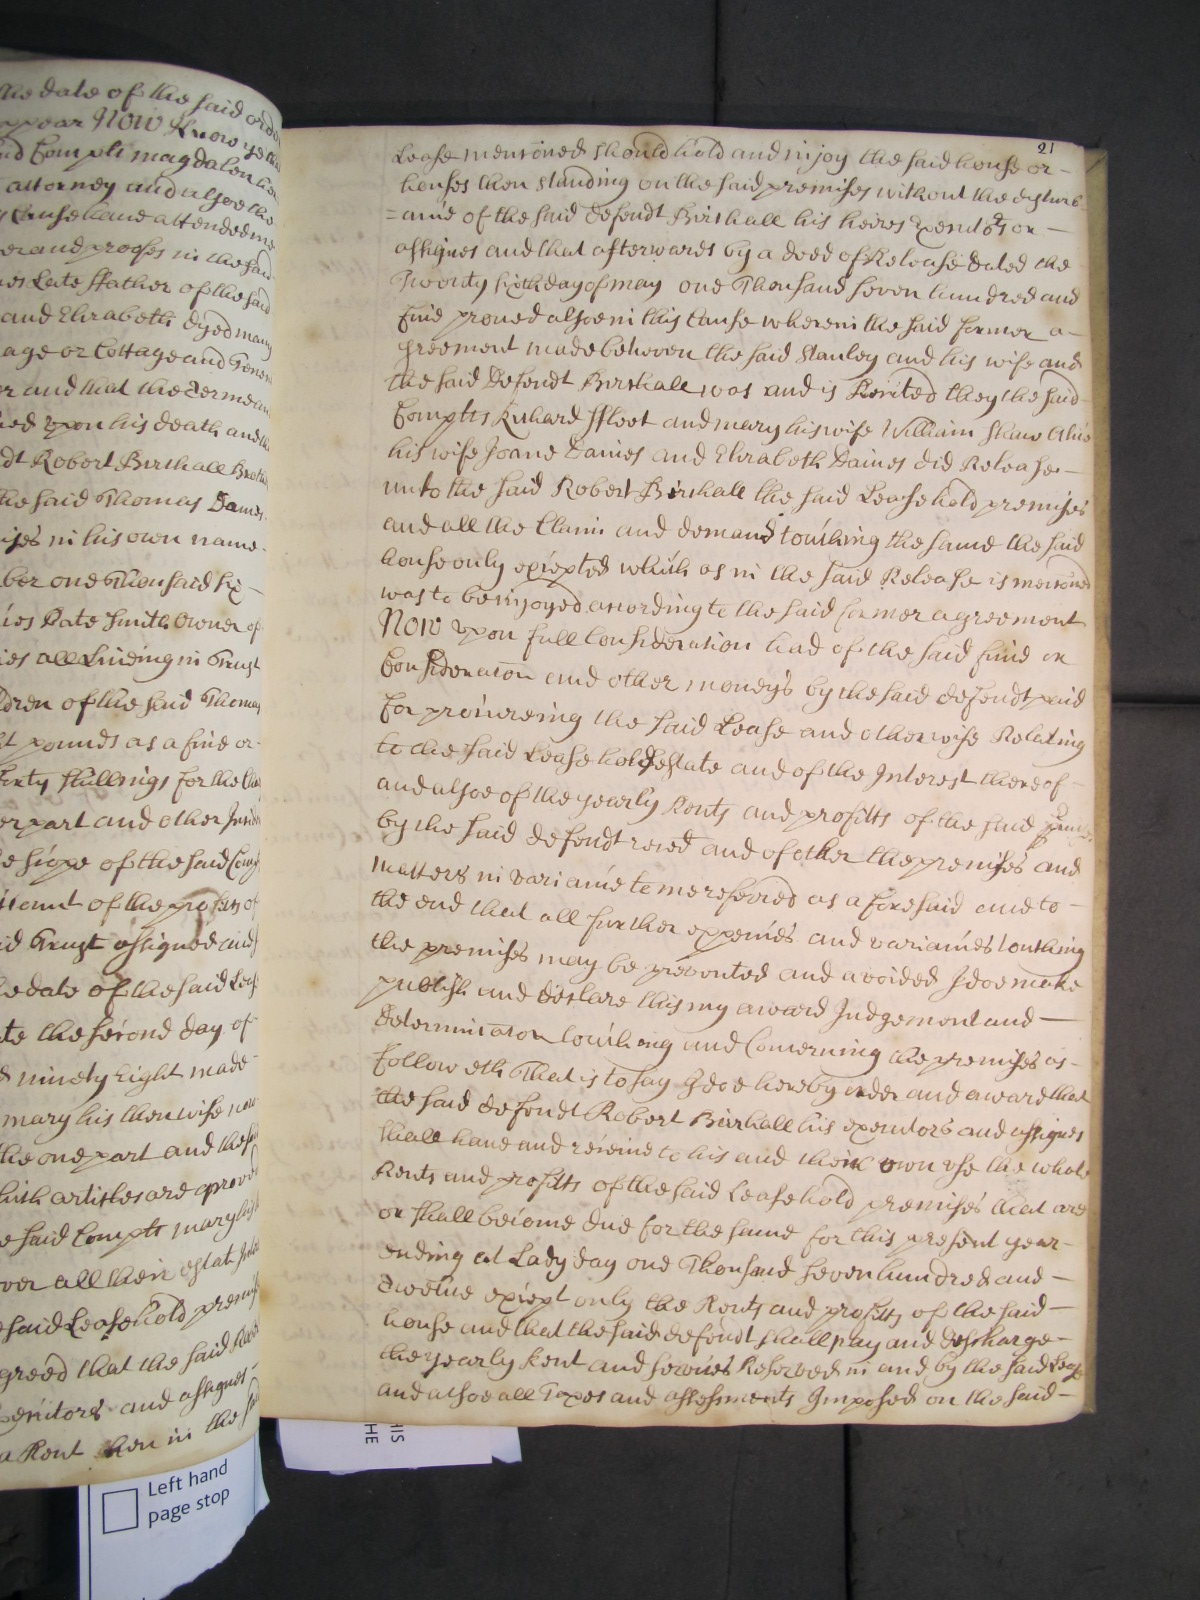 the date of the said order
appear Now Know ye that
and Complt magdalen her
attorney and alsoe the
Cause have attended me
er and proofes in the said
nes Late ffather of the said
and Elizabeth dyed many
age or Cottage and Tenem
er and that the Terme and
ed upon his death and
dt Robert Birchall Broth
the said Thomas Daines
ises in his own name
ber one Thousand six
ies Kate Smith Owner of
ies all Liueing in Trust
ldren of the said Thomas
ht pounds as a fine or
forty shillings for the
er part and other
e hope of the said Comp
count of the profitts of
id Trust assigned and
e date of the said Lease
te the second day of
d ninety Eight made
mary his then wife now
the one part and the said
hich articles are aproved
e said Complt mary his
over all their estate
said Leasehold premises
greed that the said
xecutors and assignes
a Rent then in the said
21
Lease mencioned should hold and injoy the said house or
houses then standing on the said premises without the disturb
=ance of the said defendt Birchall his heires Executors or
assignes and that afterwards by a deed of Release dated the
Twenty sixth day of may one Thousand seven hundred and
five proued alsoe in this Cause wherein the said former a-
greement made between the said Stanley and his wife and
the said Defendt Birchall was and is Recited they the said
Complts Richard ffleet and mary his wife William Shaw Alice
his wife Joane Daines and Elizabeth Daines did Release
unto the said Robert Birchall the said Leasehold premises
and all the Claim and demand touching the same the said
house only excepted which as in the said Release is mencioned
was to be injoyed according to the said former agreement
Now upon full Consideration had of the said fine or
Consideracon and other money's by the said defendt paid
for procureing the said Lease and otherwise Relating
to the said Lease hold estate and of the Interest thereof
and alsoe of the yearly Rents and profitts of the said premises
by the said defendt reced and of other the premises and
matters in variance to me referred as aforesaid and to
the end that all further expences and variances touching
the premises may be prevented and avoided I doe make
publish and declare this my award Judgement and
determinacon touching and Concerning the premises as
followeth That is to say I doe hereby order and award that
the said defendt Robert Birchall his executors and assignes
shall have and receive to his and their own use the whole
Rents and profitts of the said Leasehold premises that are
or shall become due for the same for this present year
ending at Lady day one Thousand seven hundred and
twelve except only the Rents and profitts of the said
house and that the said defendt shall pay and discharge
the yearly Rent and services Reserved in and by the said Lease
and alsoe all Taxes and assessments Imposed on the said
HIS
HE
Left hand
page stop